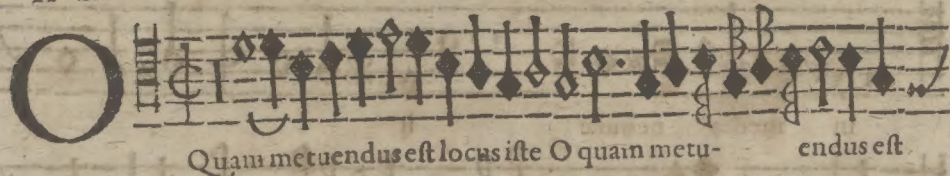 O
Quam metuendus eſt locus iſte O quam metu- endus eſt